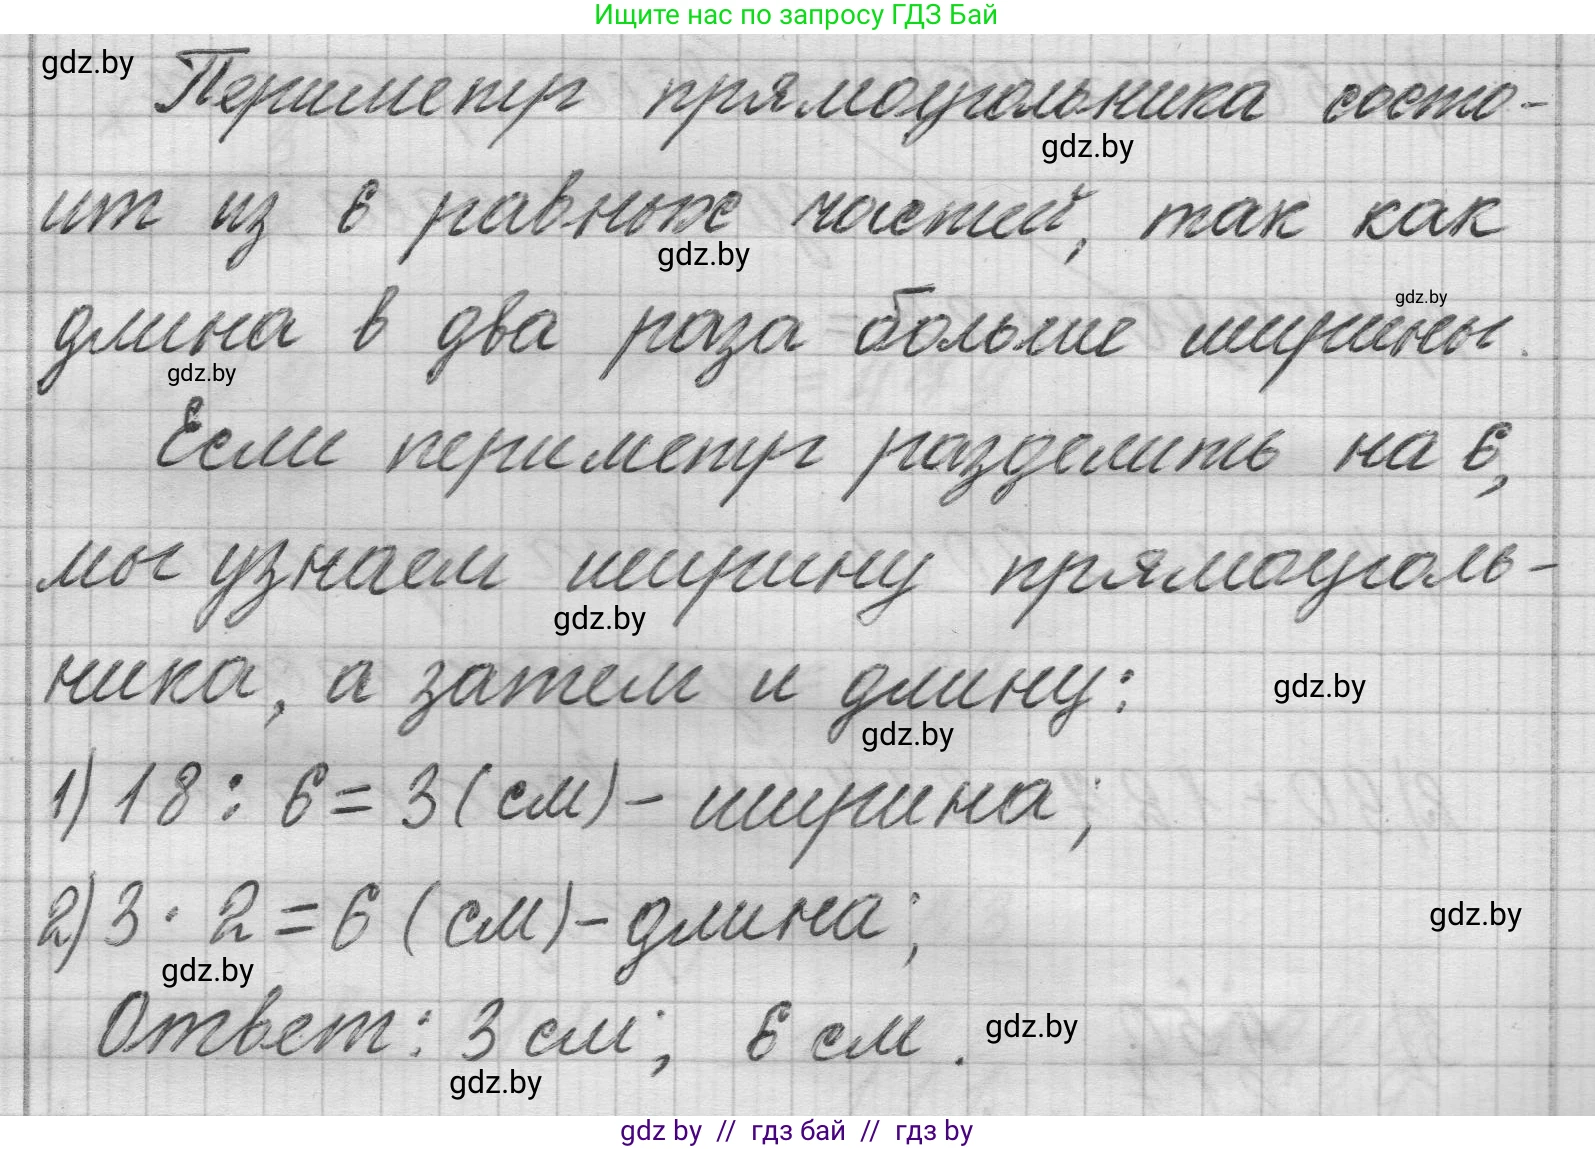 Ищите нас по запросу ГДЗ Бай
gdz.by
Периметр прямоугольника состо-
gdz.by
ит из 6 равных частей, так как
gdz.by
gdz.by
длина в два раза больше ширины.
gdz.by
Если периметр разделить на 6,
мы узнаем ширину прямоуголь-
gdz.by
ника, а затем и длину:
gdz.by
gdz.by
1) 18 : 6 = 3 (см) – ширина;
2) 3 · 2 = 6 (см) – длина;
gdz.by
gdz.by
Ответ: 3 см; 6 см.
gdz.by
gdz.by
gdz by // гдз бай // гдз by